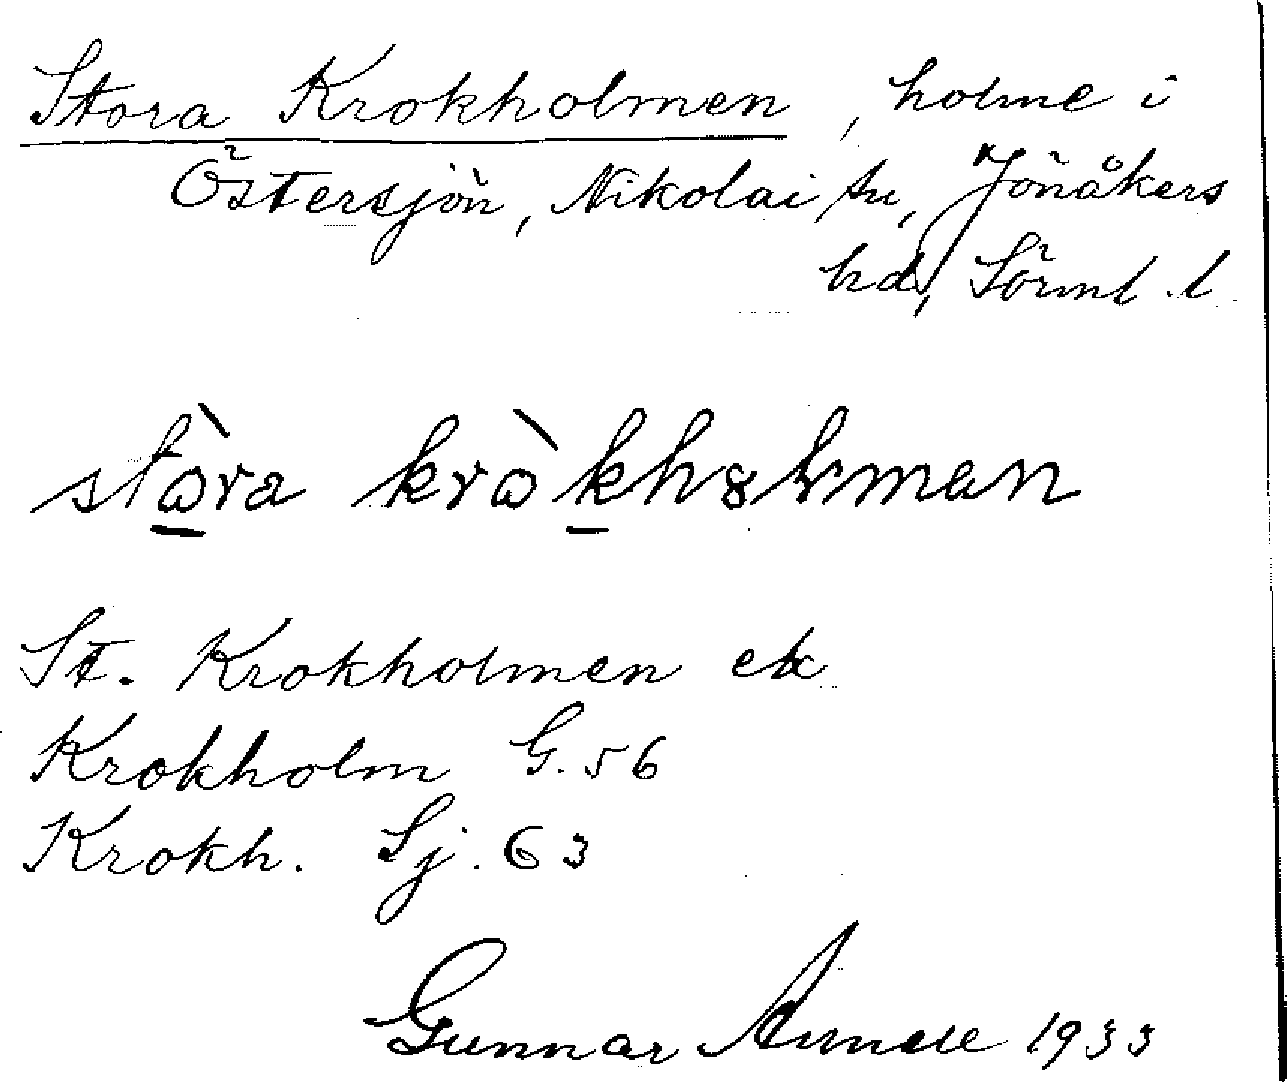 Stora Krokholmen, holme i
Östersjön, Nikolai sn, Jönåkers
hd, Sörml. l.
stòra kròkhȣlmen
St. Krokholmen ek
Krokholm G. 56
Krokh. Sj. 63
Gunnar 1933